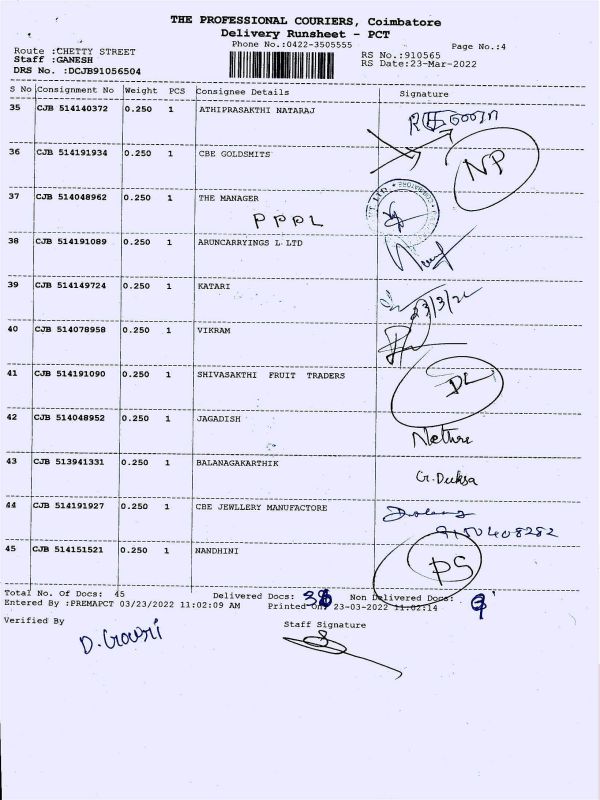 THE PROFESSIONAL COURIERS, Coimbatore
Delivery Runsheet - PCT
Phone No.:0422-3505555
Page No.:4
Route :CHETTY STREET
Staff :GANESH
DRS No. :DCJB91056504
RS No.:910565
RS Date:23-Mar-2022
S No Consignment No Weight PCS Consignee Details Signature
35 CJB 514140372 0.250 1 ATHIPRASAKTHI NATARAJ
36 CJB 514191934 0.250 1 CBE GOLDSMITS NP
37 CJB 514048962 0.250 1 THE MANAGER
PPPL
38 CJB 514191089 0.250 1 ARUNCARRYINGS L LTD
39 CJB 514149724 0.250 1 KATARI 23/3/22
40 CJB 514078958 0.250 1 VIKRAM
41 CJB 514191090 0.250 1 SHIVASAKTHI FRUIT TRADERS DL
42 CJB 514048952 0.250 1 JAGADISH
43 CJB 513941331 0.250 1 BALANAGAKARTHIK
44 CJB 514191927 0.250 1 CBE JEWLLERY MANUFACTORE
45 CJB 514151521 0.250 1 NANDHINI DS
Total No. Of Docs: 45 Delivered Docs: Non Delivered Docs:
Entered By :PREMAPCT 03/23/2022 11:02:09 AM Printed On: 23-03-2022 11:02:14
Verified By Staff Signature
D. Gowri